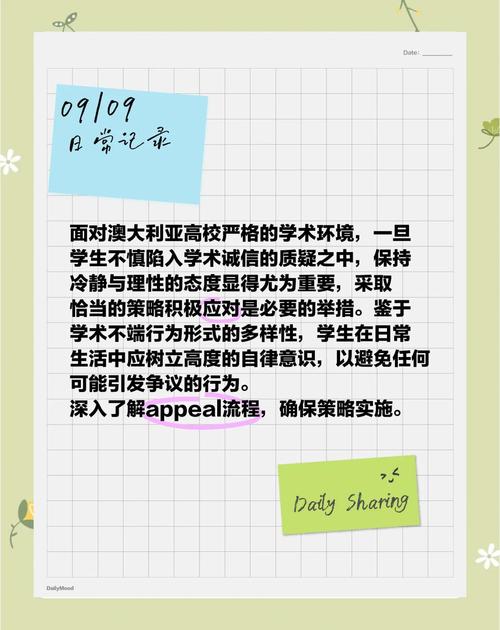 Date:
09/09
日常记录
面对澳大利亚高校严格的学术环境，一旦
学生不慎陷入学术诚信的质疑之中，保持
冷静与理性的态度显得尤为重要，采取
恰当的策略积极应对是必要的举措。鉴于
学术不端行为形式的多样性，学生在日常
生活中应树立高度的自律意识，以避免任何
可能引发争议的行为。
深入了解appeal流程，确保策略实施。
Daily Sharing
DailyMood